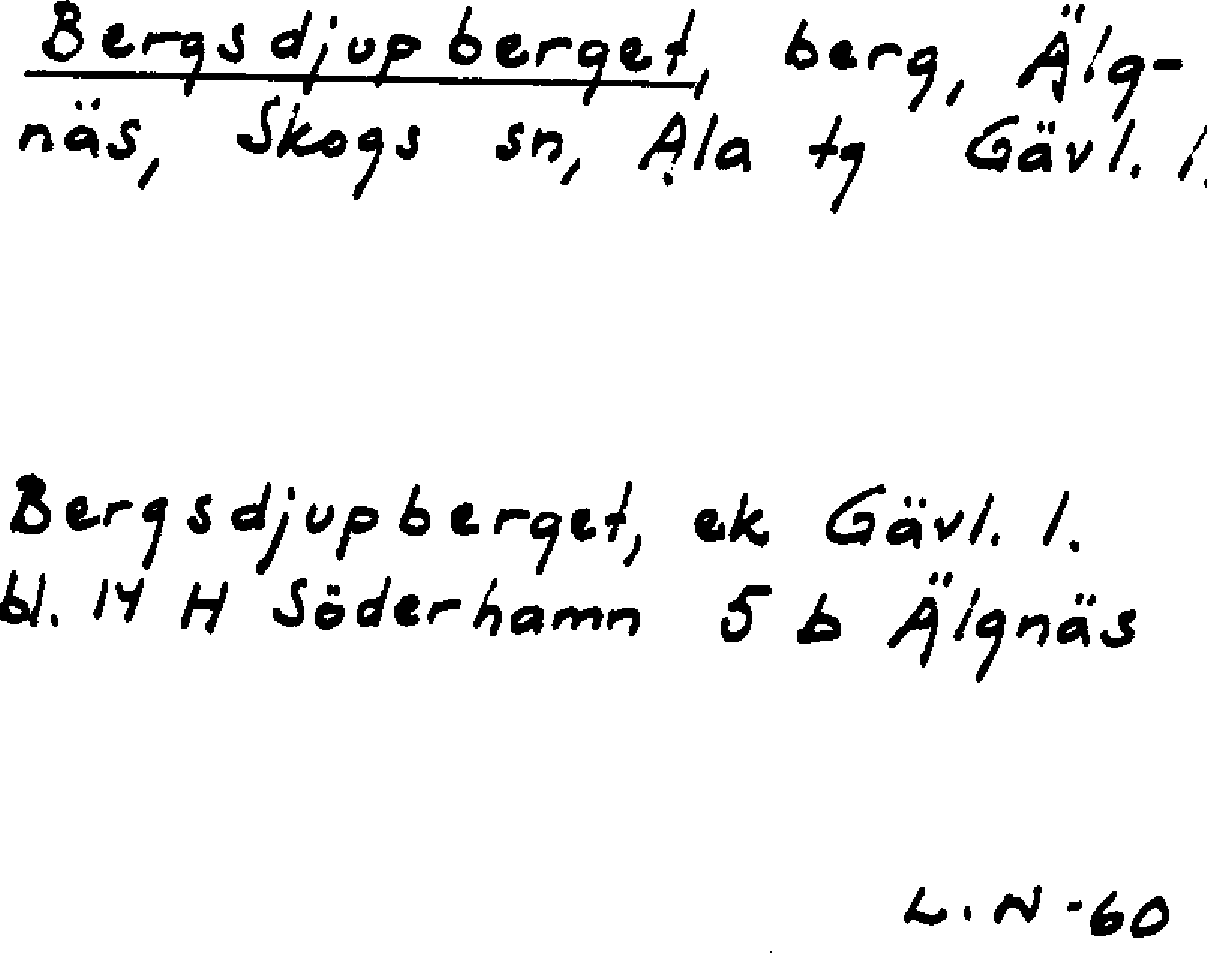 Bergsdjupberget, berg, Älg-
näs, Skogs sn, Ala tg Gävl. l.
Bergsdjupberget, ek Gävl. l.
bl. 14 H Söderhamn 5 b Älgnäs
L. N -60